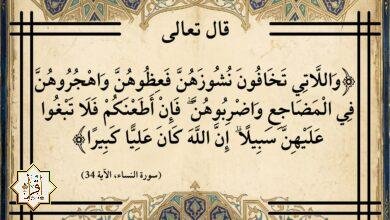 قال تعالى
﴿وَاللَّاتِي تَخَافُونَ نُشُوزَهُنَّ فَعِظُوهُنَّ وَاهْجُرُوهُنَّ
فِي الْمَضَاجِعِ وَاضْرِبُوهُنَّ ۖ فَإِنْ أَطَعْنَكُمْ فَلَا تَبْغُوا
عَلَيْهِنَّ سَبِيلًا ۗ إِنَّ اللَّهَ كَانَ عَلِيًّا كَبِيرًا﴾
(سورة النساء، الآية 34)